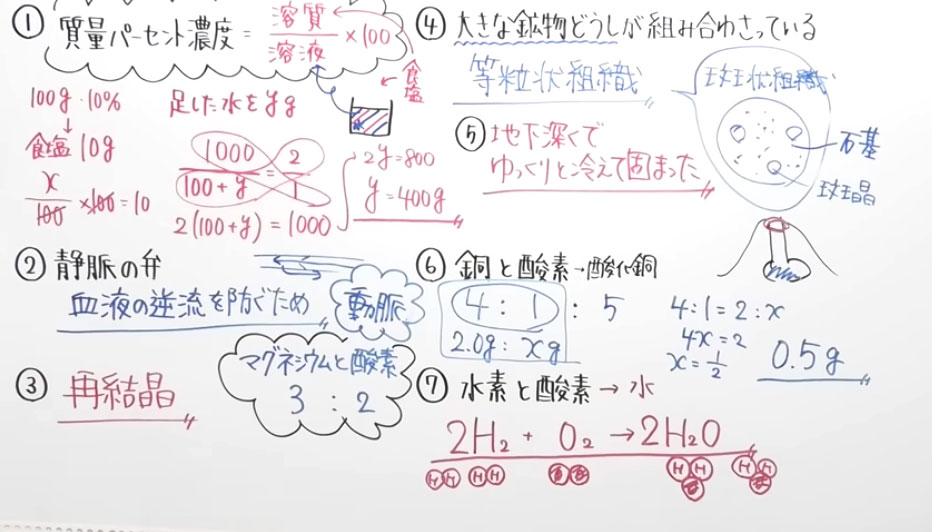 ① 質量パーセント濃度 = 溶質/溶液 ×100
食塩
100g 10%
↓
食塩 10g
x/100 ×100 = 10
足した水をyg
1000/100+y = 2/1
2(100+y) = 1000
2y = 800
y = 400g
② 静脈の弁
血液の逆流を防ぐため
動脈
③ 再結晶
マグネシウムと酸素
3 : 2
④ 大きな鉱物どうしが組み合わさっている
等粒状組織
斑状組織
石基
斑晶
⑤ 地下深くで
ゆっくりと冷えて固まった
⑥ 銅と酸素→酸化銅
4 : 1 : 5
2.0g : xg
4:1 = 2:x
4x = 2
x = 1/2
0.5g
⑦ 水素と酸素 → 水
2H₂ + O₂ → 2H₂O
H H H H O O H H O H H O